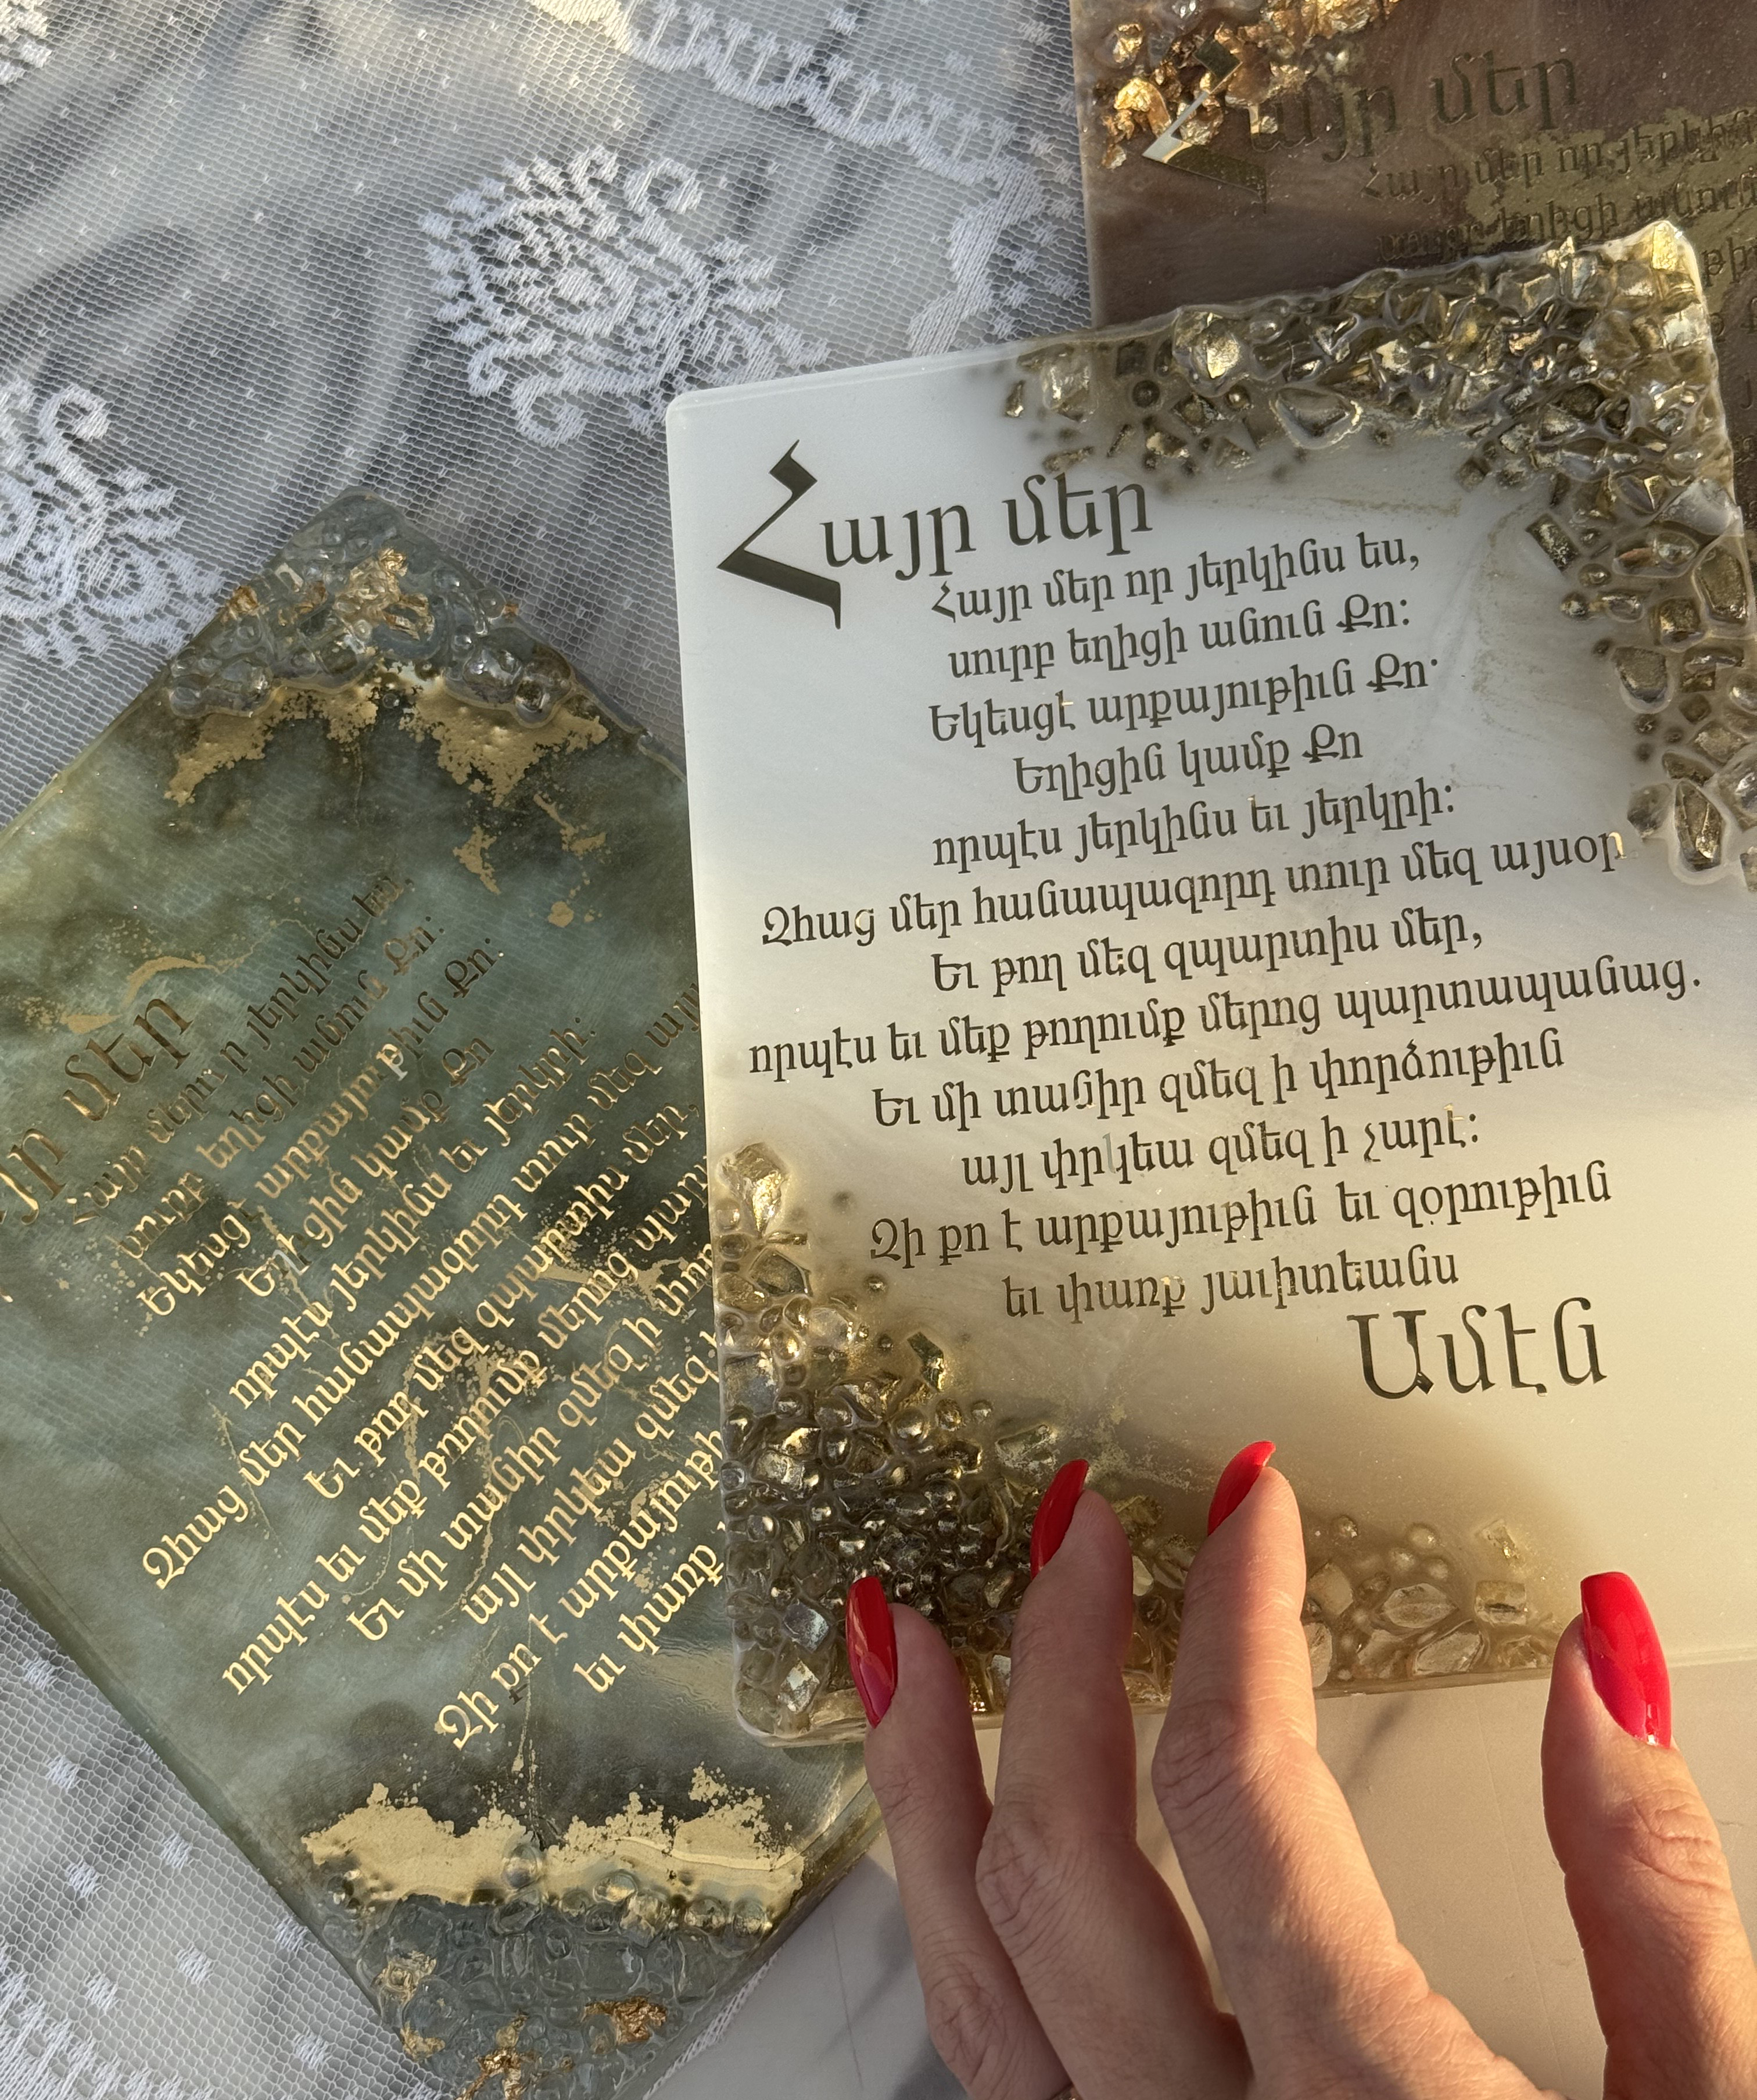 Հայր մեր
Հայր մեր որ յերկինս ես,
սուրբ եղիցի անուն Քո:
Եկեսցէ արքայութիւն Քո·
Եղիցին կամք Քո
որպէս յերկինս եւ յերկրի:
Զհաց մեր հանապազորդ տուր մեզ այսօր
Եւ թող մեզ զպարտիս մեր,
որպէս եւ մեք թողումք մերոց պարտապանաց.
Եւ մի տանիր զմեզ ի փորձութիւն
այլ փրկեա զմեզ ի չարէ:
Զի քո է արքայութիւն եւ զօրութիւն
եւ փառք յաւիտեանս
Ամէն
մեր
Հայր մեր յերկինս ես,
սուրբ եղիցի անուն Քո:
Եկեսցէ արքայութիւն Քո·
կամք Քո
որպէս յերկինս եւ յերկրի:
Զհաց մեր հանապազորդ տուր մեզ
Եւ թող մեզ զպարտիս մեր,
որպէս եւ մեք թողումք մերոց
Եւ մի տանիր զմեզ ի
այլ փրկեա զմեզ
Զի քո է
եւ փառք
Հայր մեր
Հայր մեր որ
եղիցի